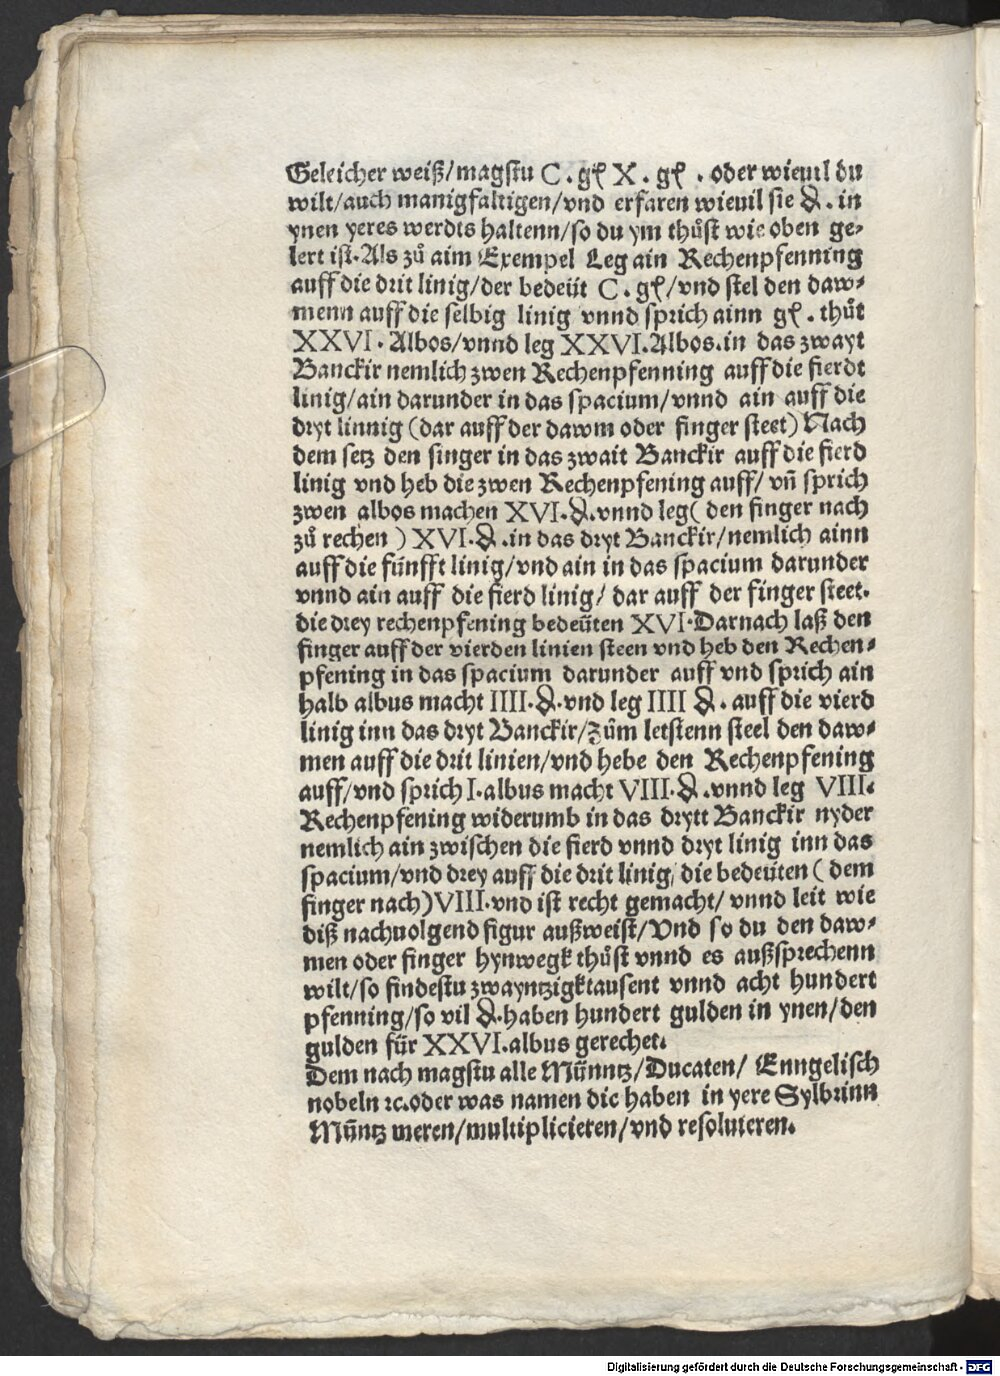 Geleicher weiß/magstu C. gł X. gł. oder wieuil du
wilt/auch manigfaltigen/vnd erfaren wieuil sie ₰. in
ynen yeres werdts haltenn/so du ym thůst wie oben ge⸗
lert ist. Als zů aim Exempel Leg ain Rechenpfenning
auff die drit linig/der bedeüt C. gł/vnd stel den daw⸗
menn auff die selbig linig vnnd sprich ainn gł. thůt
XXVI. Albos/vnnd leg XXVI. Albos. in das zwayt
Banckir nemlich zwen Rechenpfenning auff die fierdt
linig/ain darunder in das spacium/vnnd ain auff die
dryt linnig (dar auff der dawm oder finger steet) Nach
dem setz den singer in das zwait Banckir auff die fierd
linig vnd heb die zwen Rechenpfening auff/ vñ sprich
zwen albos machen XVI. ₰. vnnd leg( den finger nach
zů rechen ) XVI. ₰. in das dryt Banckir/nemlich ainn
auff die fünfft linig/vnd ain in das spacium darunder
vnnd ain auff die fierd linig/ dar auff der finger steet.
die drey rechenpfening bedeüten XVI. Darnach laß den
finger auff der vierden linien steen vnd heb den Rechen⸗
pfening in das spacium darunder auff vnd sprich ain
halb albus macht IIII. ₰. vnd leg IIII ₰. auff die vierd
linig inn das dryt Banckir/Zům letstenn steel den daw⸗
men auff die drit linien/vnd hebe den Rechenpfening
auff/vnd sprich I. albus macht VIII. ₰. vnnd leg VIII.
Rechenpfening widerumb in das drytt Banckir nyder
nemlich ain zwischen die fierd vnnd dryt linig inn das
spacium/vnd drey auff die drit linig/ die bedeüten ( dem
finger nach) VIII. vnd ist recht gemacht/ vnnd leit wie
diß nachuolgend figur außweist/Vnd so du den daw⸗
men oder finger hynwegk thůst vnnd es außsprechenn
wilt/so findestu zwayntzigktausent vnnd acht hundert
pfenning/so vil ₰. haben hundert gulden in ynen/den
gulden für XXVI. albus gerechet.
Dem nach magstu alle Münntz/Ducaten/ Enngelisch
nobeln ꝛc. oder was namen die haben in yere Sylbrinn
Müntz meren/multiplicieren/vnd resoluieren.
Digitalisierung gefördert durch die Deutsche Forschungsgemeinschaft - DFG